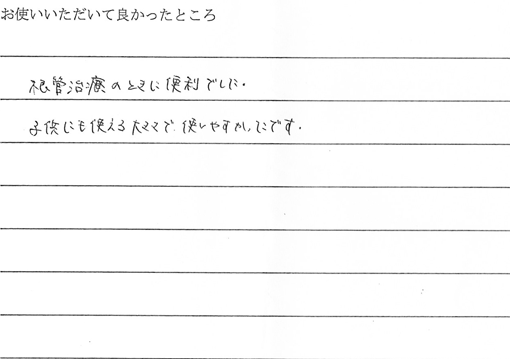 お使いいただいて良かったところ
根管治療のときに便利でした.
子供にも使える大きさで使いやすかったです.